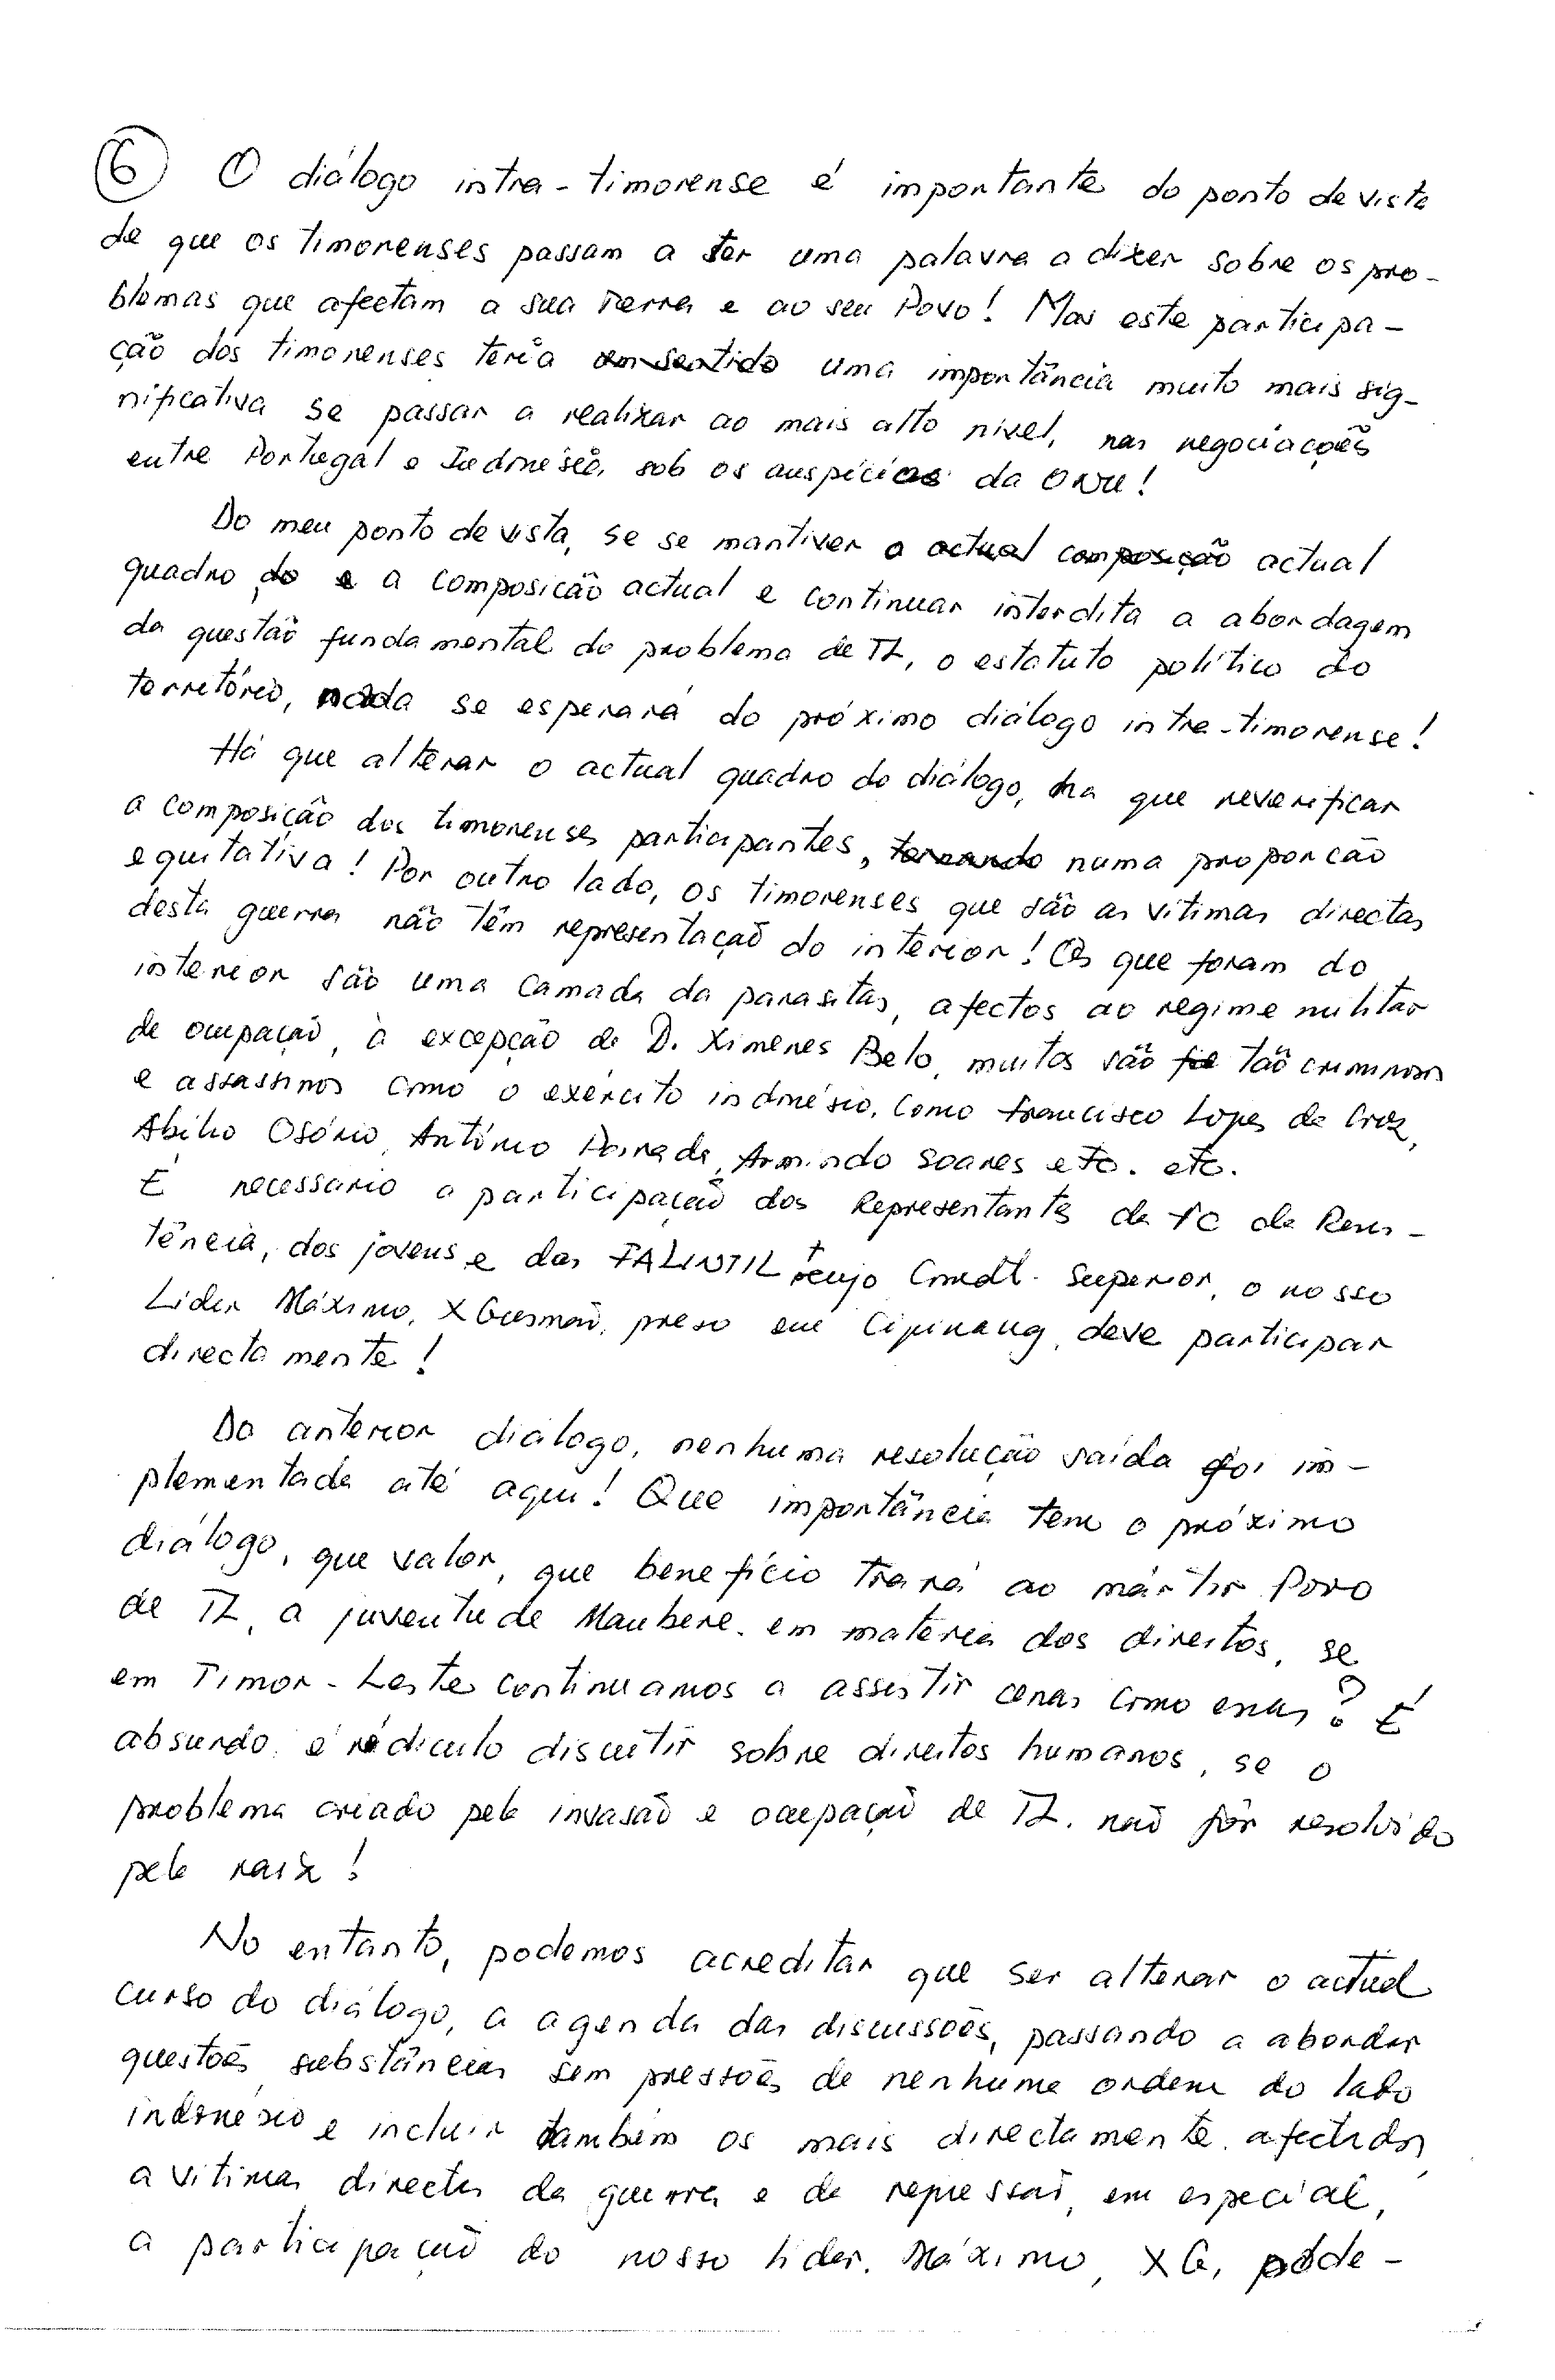 6 O diálogo intra-timorense é importante do ponto de vista
de que os timorenses passam a ter uma palavra a dizer sobre os pro-
blemas que afectam a sua Terra e ao seu Povo! Mas este participa-
ção dos timorenses teria um sentido uma importância muito mais sig-
nificativa se passar a realizar ao mais alto nível, nas negociações
entre Portugal e Indonésia, sob os auspícios da ONU!
Do meu ponto de vista, se se mantiver o actual composição actual
quadro do e a composição actual e continuar interdita a abordagem
da questão fundamental do problema de TL, o estatuto político do
território, nada se esperará do próximo diálogo intra-timorense!
Há que alterar o actual quadro do diálogo, ha que reverificar
a composição dos timorenses participantes, tornando numa proporcão
equitativa! Por outro lado, os timorenses que são as vítimas directas
desta guerra não têm representação do interior! Os que foram do
interior são uma camada da parasitas, afectos ao regime militar
de ocupação, à excepção de D. Ximenes Belo, muitos são tão criminosos
e assassinos como o exército indonésio, como Francisco Lopes da Cruz,
Abílio Osório, António Parada, Armindo Soares etc. etc.
É necessário a participação dos Representantes da FC da Resis-
tência, dos jovens e das FALINTIL cujo Comdt. Superior, o nosso
Líder Máximo, X Gusmão, preso em Cipinang, deve participar
directamente!
Do anterior diálogo, nenhuma resolução saída foi im-
plementada até aqui! Que importância tem o próximo
diálogo, que valor, que benefício trará ao mártir Povo
de TL, a juventude Maubere, em matéria dos direitos, se
em Timor-Leste continuamos a assistir cenas como essas? É
absurdo, é rídiculo discutir sobre direitos humanos, se o
problema criado pela invasão e ocupação de TL. não fôr resolvido
pela raiz!
No entanto, podemos acreditar que ser alterar o actual
curso do diálogo, a agenda das discussões, passando a abordar
questões substâncias sem pressões de nenhuma ordem do lado
indonésio e incluir também os mais directamente afectados,
a vítimas directas da guerra e da repressão, em especial,
a participação do nosso líder Máximo, XG, pode-